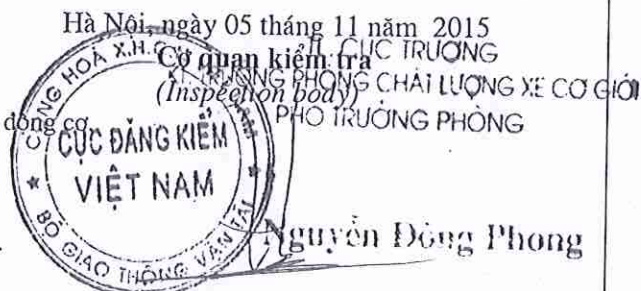 Hà Nội, ngày 05 tháng 11 năm 2015
Cơ quan kiểm tra
(Inspection body)
TL. CỤC TRƯỞNG
KT. TRƯỞNG PHÒNG CHẤT LƯỢNG XE CƠ GIỚI
PHÓ TRƯỞNG PHÒNG
động cơ
CỘNG HOÀ X.H.C.N VIỆT NAM
CỤC ĐĂNG KIỂM
VIỆT NAM
BỘ GIAO THÔNG VẬN TẢI
Nguyễn Đông Phong